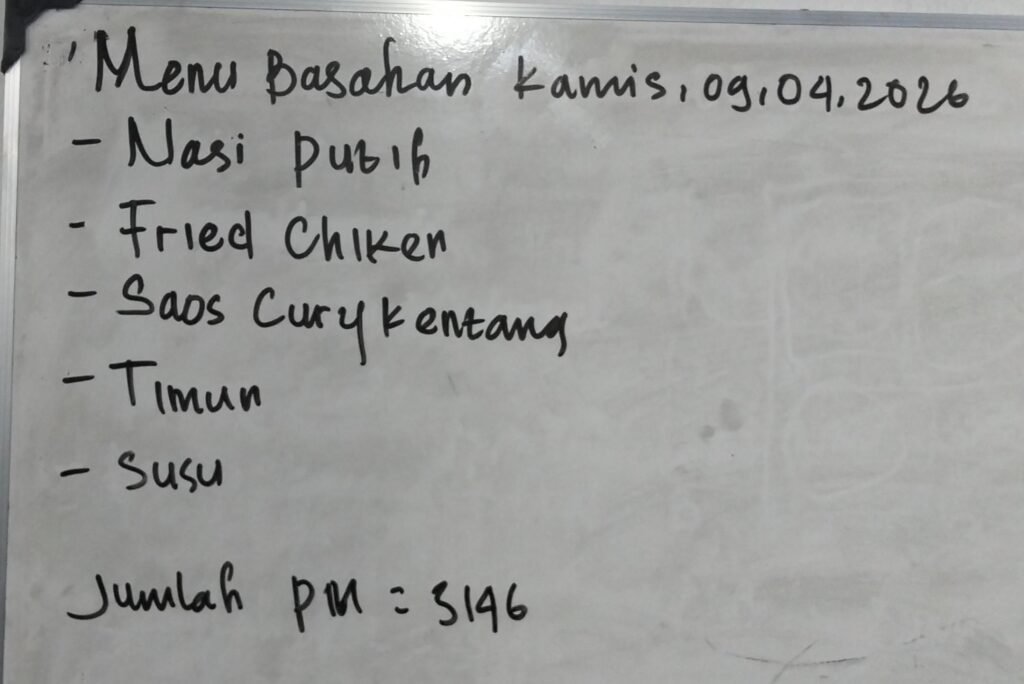 Menu Basahan Kamis, 09,04,2026
- Nasi Putih
- Fried Chiken
- Saos Cury Kentang
- Timun
- Susu
Jumlah PM = 3196